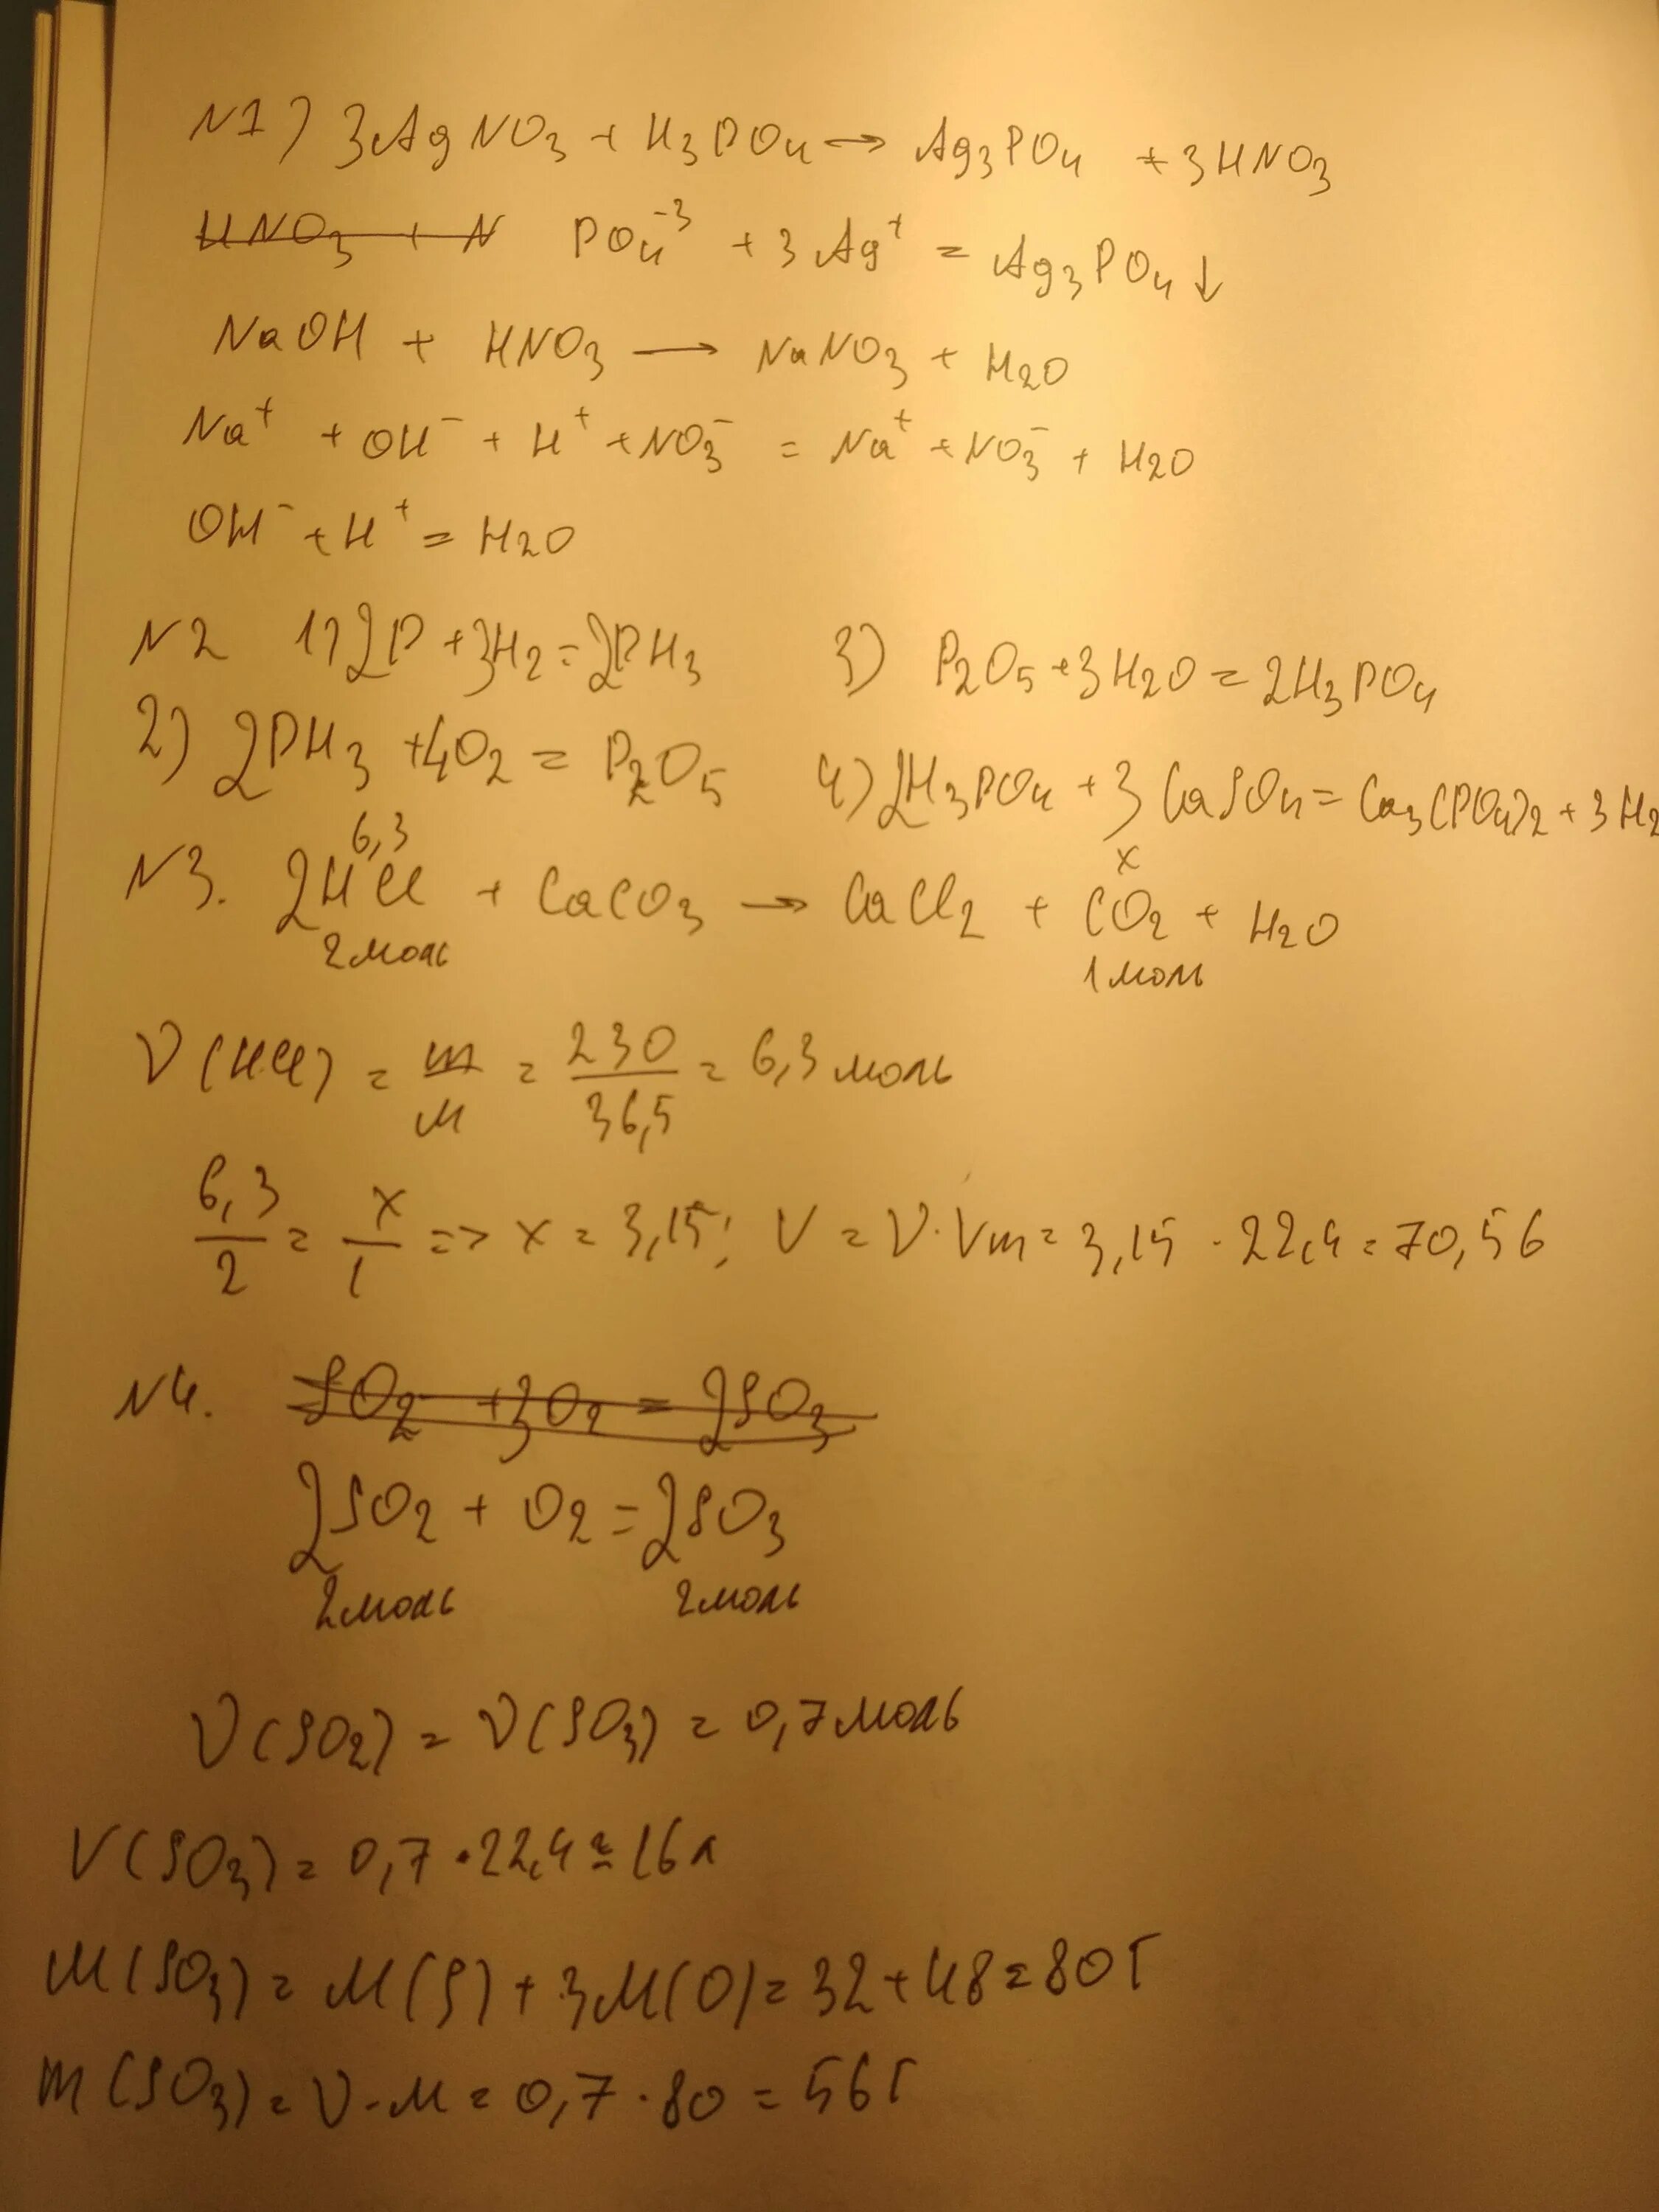 N1) 3AgNO3 + H3PO4 → Ag3PO4 + 3HNO3
HNO3 + N PO4^-3 + 3Ag^+ = Ag3PO4↓
NaOH + HNO3 → NaNO3 + H2O
Na^+ + OH^- + H^+ + NO3^- = Na^+ + NO3^- + H2O
OH^- + H^+ = H2O
N2 1) 2P + 3H2 = 2PH3 3) P2O5 + 3H2O = 2H3PO4
2) 2PH3 + 4O2 = P2O5 4) 2H3PO4 + 3CaSO4 = Ca3(PO4)2 + 3H2
6,3 x
N3. 2HCl + CaCO3 → CaCl2 + CO2 + H2O
2моль 1моль
ν(HCl) = m/M = 230/36,5 = 6,3 моль
6,3/2 = x/1 => x = 3,15; V = ν·Vm = 3,15 · 22,4 = 70,56
N4. SO2 + 3O2 = 2SO3
2SO2 + O2 = 2SO3
2моль 2моль
ν(SO2) = ν(SO3) = 0,7моль
V(SO3) = 0,7 · 22,4 ≈ 16л
M(SO3) = M(S) + 3M(O) = 32 + 48 = 80г
m(SO3) = ν·M = 0,7 · 80 = 56г